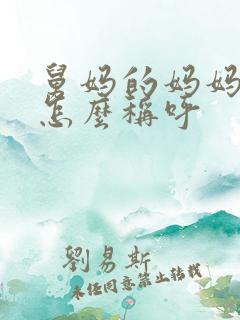 舅妈的妈妈
怎麼稱呼
劉易斯
未经同意禁止转载